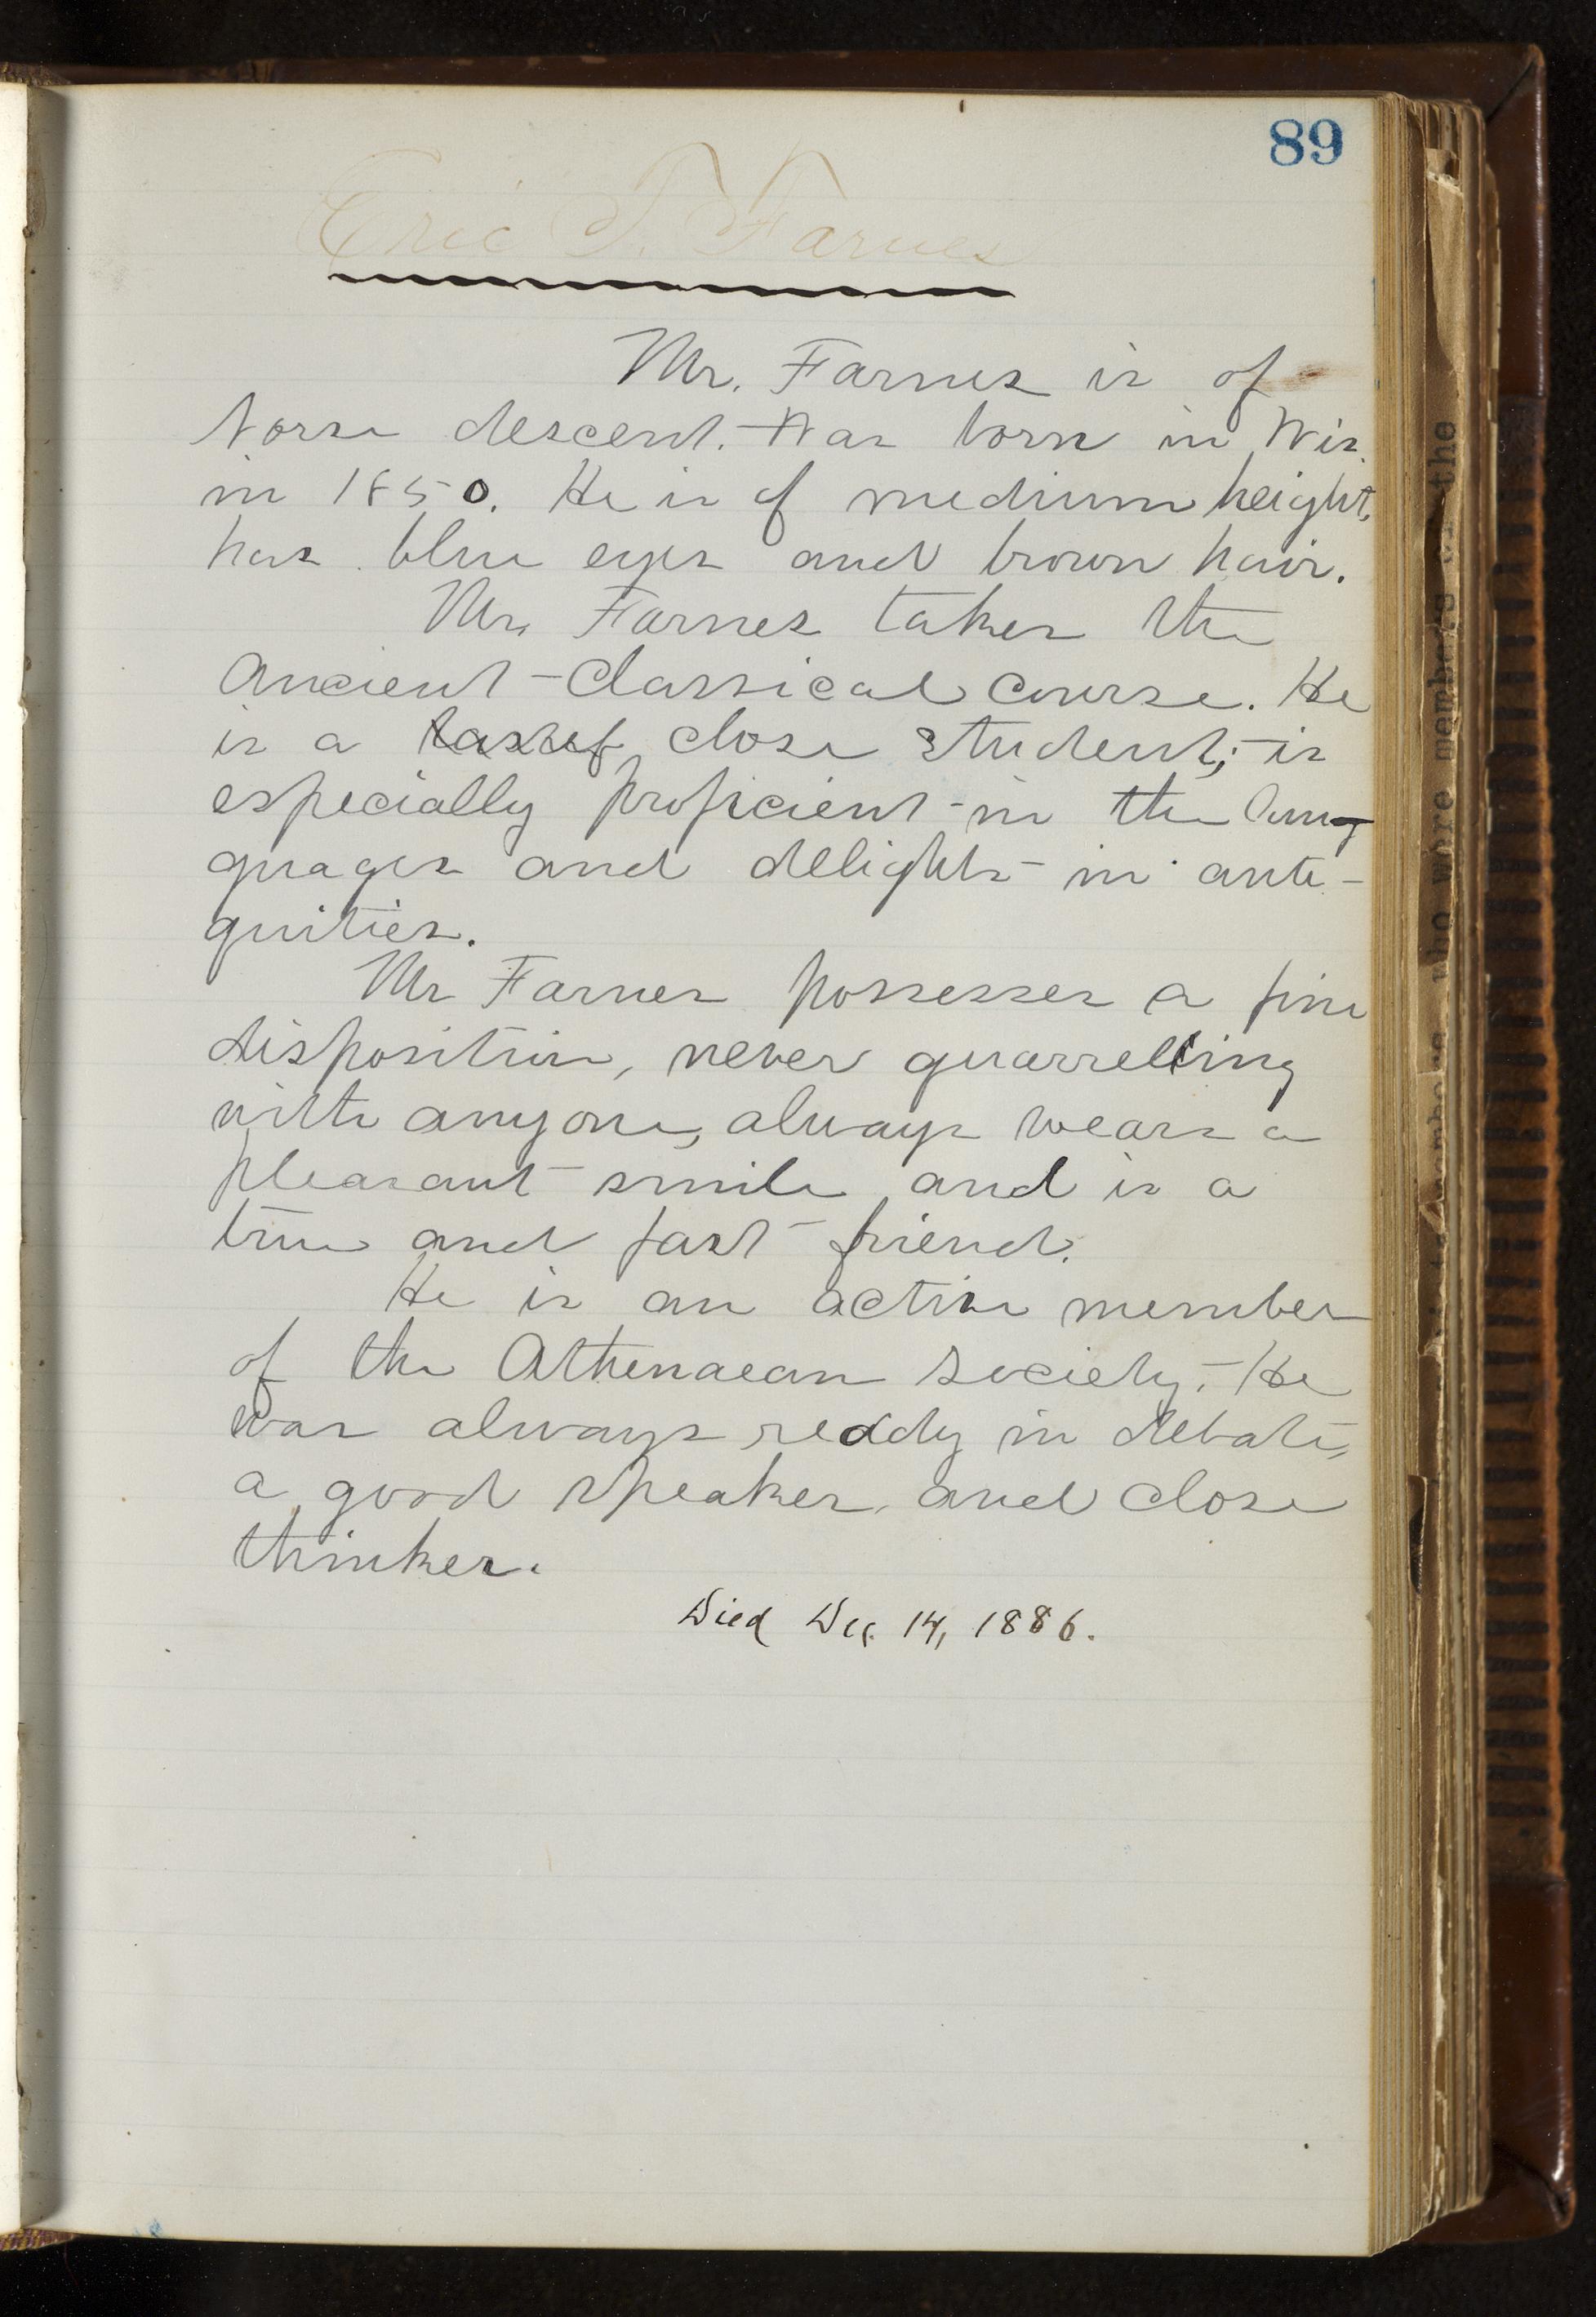 89
Eric T. Farnes
Mr. Farnes is of
Norse descent. Was born in Wis.
in 1850. He is of medium height,
has blue eyes and brown hair.
Mr. Farnes takes the
Ancient Classical Course. He
is a close student; is
especially proficient in the lan-
guages and delights in anti-
quities.
Mr Farnes possesses a fine
disposition, never quarrelling
with anyone, always wears a
pleasant smile and is a
true and fast friend.
He is an active member
of the Athenaean Society. He
was always ready in debate,
a good speaker, and close
thinker.
Died Dec. 14, 1886.
who were members of the